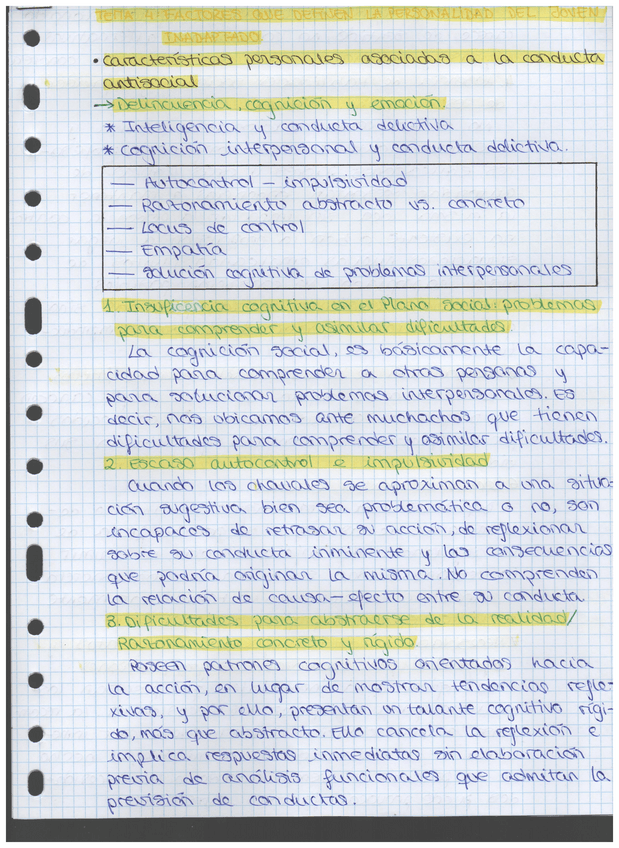 TEMA 4: FACTORES QUE DEFINEN LA PERSONALIDAD DEL JOVEN
INADAPTADO
• Características personales asociadas a la conducta
antisocial
→ Delincuencia, cognición y emoción.
* Inteligencia y conducta delictiva
* Cognición interpersonal y conducta delictiva.
— Autocontrol – impulsividad
— Razonamiento abstracto vs. concreto
— Locus de control
— Empatía
— Solución cognitiva de problemas interpersonales
1. Insuficencia cognitiva en el Plano social: problemas
para comprender y asimilar dificultades
La cognición social, es básicamente la capa-
cidad para comprender a otras personas y
para solucionar problemas interpersonales. Es
decir, nos ubicamos ante muchachos que tienen
dificultades para comprender y asimilar dificultades.
2. Escaso autocontrol e impulsividad
Cuando los chavales se aproximan a una situa-
ción sugestiva bien sea problemática o no, son
incapaces de retrasar su acción, de reflexionar
sobre su conducta inminente y las consecuencias
que podría originar la misma. No comprenden
la relación de causa-efecto entre su conducta
3. Dificultades para abstraerse de la realidad/
Razonamiento concreto y rígido.
Poseen patrones cognitivos orientados hacia
la acción, en lugar de mostrar tendencias refle-
xivas, y por ello, presentan un talante cognitivo rígi-
do, más que abstracto. Ello cancela la reflexión e
implica respuestas inmediatas sin elaboración
previa de análisis funcionales que admitan la
previsión de conductas.